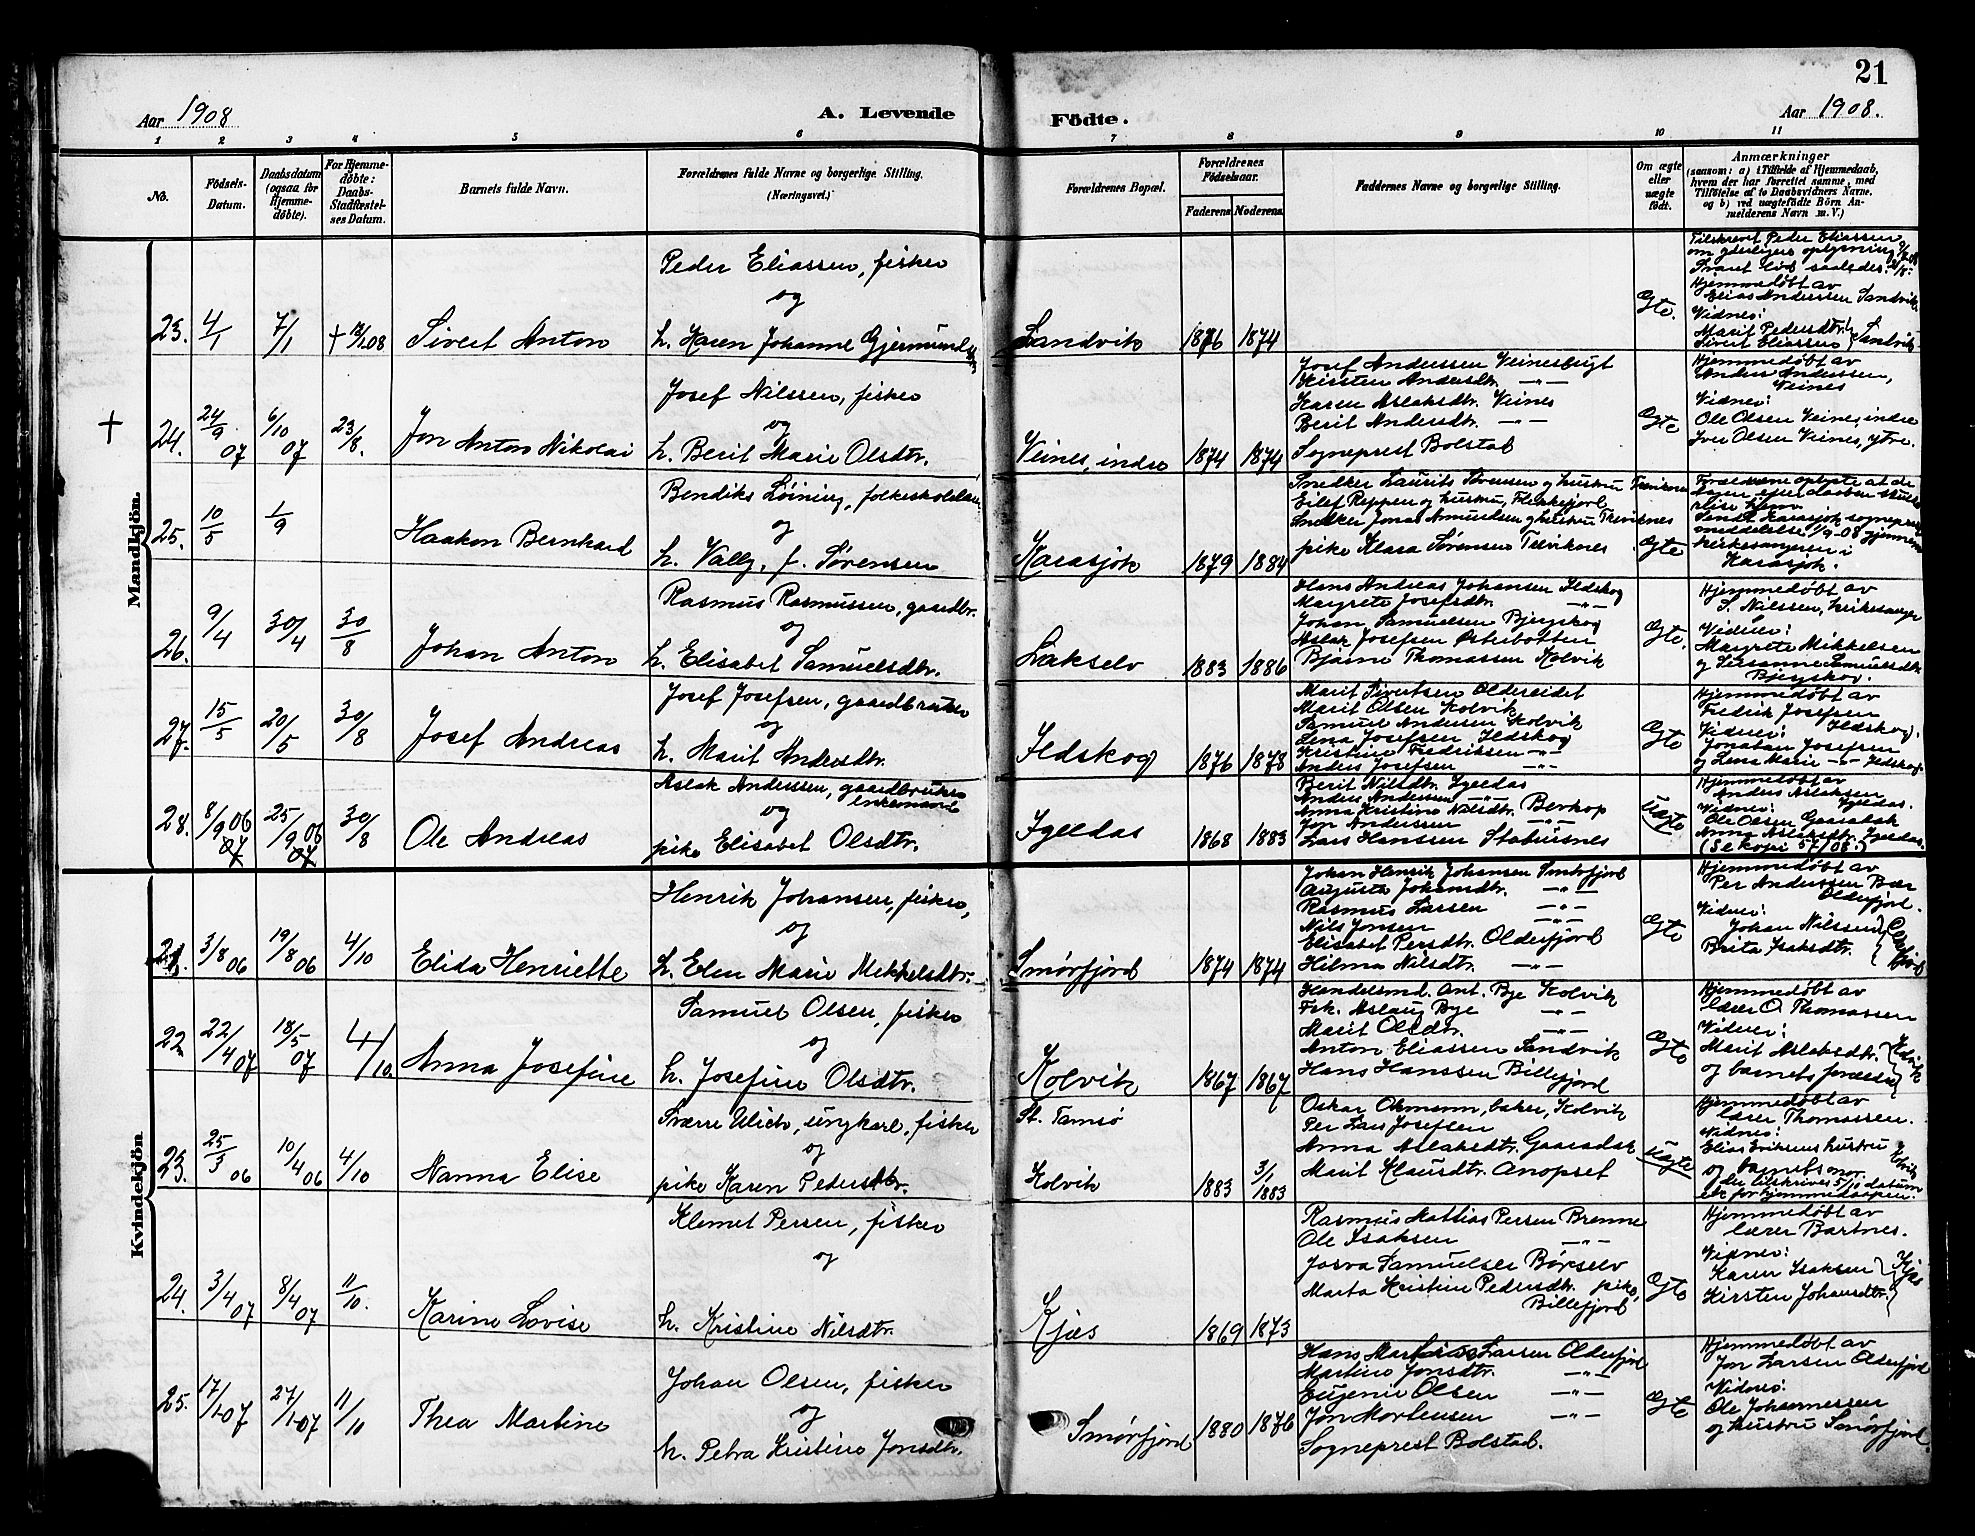 21
Aar 1908
A. Levende
Födte.
Aar 1908.
1 2 3 4 5 6 7 8 9 10 11
No.
Födsels-
Datum.
Daabsdatum
(ogsaa for
Hjemme-
döbte).
For Hjemme-
döbte:
Daabs-
Stadfæstel-
ses Datum.
Barnets fulde Navn.
Forældrenes fulde Navne og borgerlige Stilling.
(Næringsvei.)
Forældrenes Bopæl.
Forældrenes
Födselsaar.
Faderens. Moderens.
Faddernes Navne og borgerlige Stilling.
Om ægte
eller
uægte
födt.
Anmærkninger
(saasom: a) i Tilfælde af Hjemmedaab,
hvem der har forrettet samme, med
Tilföielse af to Daabsvidners Navne,
og b) ved uægtefödte Börn An-
melderens Navn m. V.)
Mandkjön.
23. 4/1 7/1 + 12/1 08 Sivert Anton
Peder Eliassen, fisker
og
h. Karen Johanne Gjermundsdtr.
Sandvik 1876 1874
Ægte.
Tilskrevet Peder Eliassen
om yderligere oplysning
Svaret lød saaledes:
Hjemmedøbt av
Elias Anderssen Sandvik
Vidner:
Marit Pedersdtr.
Sivert Eliassen } Sandvik
+
24. 24/9 07 6/10 07 23/8. Jon Anton Nikolai
Josef Nilssen, fisker
og
h. Berit Marie Olsdtr.
Veines, indre 1874 1874
Josef Anderssen Veinesbugt
Kirsten Andersdtr. -"-
Karen Aslaksdtr. Veines
Berit Andersdtr. -"-
Sogneprest Bolstad
Ægte
Hjemmedøbt av
Anders Anderssen,
Veines
Vidner:
Ole Olsen Veines, indre
Iver Olsen Veines, ytre.
25. 10/5 1/9 Haakon Bernhard
Bendiks Løining, folkeskolelærer
og
h. Vally, f. Sørensen
Karasjok 1879 1884
Snedker Laurits Sørensen og hustru Treviknes
Eilef Reppen og hustru, Flekkefjord
Snedker Jonas Amundsen og hustru Treviknes
pike Klara Sørensen Treviknes
Ægte
Forældrene oplyste at de
kirkesangeren i
Karasjok.
26. 9/4 30/4 30/8 Johan Anton
Rasmus Rasmussen, gaardbr.
og
h. Elisabet Samuelsdtr.
Lakselv 1883 1886
Hans Andreas Johansen Ildskog
Margrete Josefsdtr. -"-
Johan Samuelsen Bjergskog
Aslak Josefsen Østerbotten
Bjarne Thomassen Kolvik
Ægte.
Hjemmedøbt av
S. Nilssen, kirkesanger
Vidner:
Margrete Mikkelsen
og Susanne Samuelsdtr.
Bjergskog.
27. 15/5 20/5 30/8 Josef Andreas
Josef Josefsen, gaardbruker
og
h. Marit Andersdtr.
Ildskog 1876 1878
Marit Sivertsen Oldereidet
Marit Olsen Kolvik
Samuel Andersen Kolvik
Lena Josefsen Ildskog
Kristine Fredriksen -"-
Anders Josefsen -"-
Ægte
Hjemmedøbt av
Fredrik Josefsen
Vidner: Ildskog.
Jonatan Josefsen
og Lena Marie -"- Ildskog.
28. 8/9 06 07 25/9 06 07 30/8 Ole Andreas
Aslak Anderssen, gaardbruker
enkemand
og
pike Elisabet Olsdtr.
Igeldas 1868 1883
Berit Nilsdtr. Igeldas
Anders Andersen -"-
Anna Kristine Nilsdtr. Berkop
Jon Anderssen -"-
Lars Hanssen Stabursnes
Uægte
Hjemmedøbt av
Anders Aslaksen
Vidner: Igeldas.
Ole Olsen Gaasabak
Anna Aslaksdtr. Igeldas.
(Se kopi 57/08.)
Kvindekjön
21. 3/8 06 19/8 06 4/10 Elida Henriette
Henrik Johansen, fisker,
og
h. Elen Marie Mikkelsdtr.
Smørfjord 1874 1874
Johan Henrik Johansen Smørfjord
Augusta Johansdtr. -"-
Rasmus Larsen -"-
Nils Jonsen -"-
Elisabet Persdtr. Olderfjord
Hilma Nilsdtr. -"-
Ægte
Hjemmedøbt av
Per Anderssen Bær
Olderfjord.
Vidner:
Johan Nilssen
Brita Isaksdtr.
22 22/4 07 18/5 07 4/10 Anna Josefine
Samuel Olsen, fisker
og
h. Josefine Olsdtr.
Kolvik 1867 1867
Handelsmd. Ant. Bye Kolvik
Frk. Aslaug Bye -"-
Marit Olsdtr. -"-
Anton Eliassen Sandvik
Hans Hanssen Billefjord
Ægte
Hjemmedøbt av
lærer O Thomassen
Vidner:
Marit Aslaksdtr. } Kolvik
og barnets forældre
23. 25/3 06 10/4 06 4/10 Nanna Elise
Sværre Ulich, ungkarl, fisker
og
pike Karen Pedersdtr.
St. Tamsø
Kolvik 1883 3/1 1883
Oskar Okmann, baker, Kolvik
Per Lars Josefsen
Anna Aslaksdtr. Gaasabak
Marit Klausdtr. Anopset
Uægte
Hjemmedøbt av
lærer Thomassen.
Vidner:
Elias Eriksens hustru } Kolvik
og barnets mor.
24. 3/4 07 8/4 07 11/10. Karine Lovise
Klemet Persen, fisker
og
h. Kristine Nilsdtr.
Kjæs 1869 1873
Rasmus Mattias Persen Brenne
Ole Isaksen -"-
Josva Samuelsen Børselv
Marta Kristine Pedersdtr. pike,
Billefjord
Ægte
Hjemmedøbt av
lærer Bartnes.
Vidner:
Karen Isaksen } Kjæs
Kirsten Johansdtr.
25. 17/1-07 27/1-07 11/10 Thea Martine
Johan Olsen, fisker
og
h. Petra Kristine Jonsdtr.
Smørfjord 1880 1876
Hans Martin Larsen Olderfjord
Martine Jonsdtr. -"-
Eugenie Olsen -"-
Jon Mortensen -"-
Sogneprest Bolstad.
Ægte
Hjemmedøbt av
Jon Larsen Olderfjord
Vidner:
Ole Johannessen
og hustru Smørfjord.